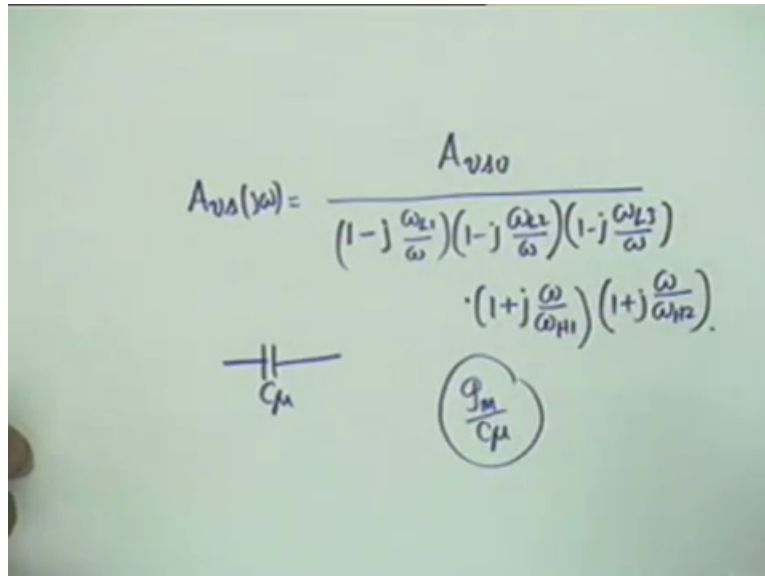 A_{vs}(jω) = A_{vso} / (1 - j ω_{L1}/ω)(1 - j ω_{L2}/ω)(1 - j ω_{L3}/ω)
· (1 + j ω/ω_{H1})(1 + j ω/ω_{H2}).
C_μ
g_m/C_μ